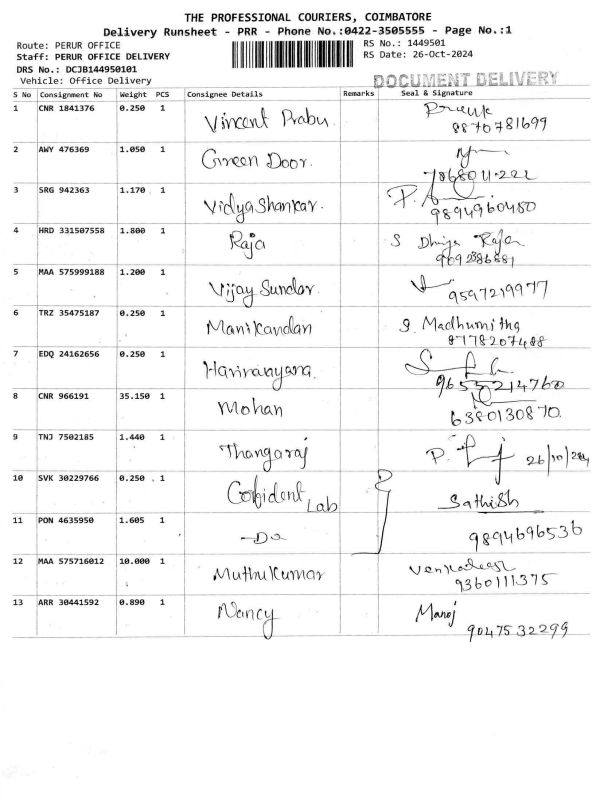 THE PROFESSIONAL COURIERS, COIMBATORE
Delivery Runsheet - PRR - Phone No.:0422-3505555 - Page No.:1
Route: PERUR OFFICE RS No.: 1449501
Staff: PERUR OFFICE DELIVERY RS Date: 26-Oct-2024
DRS No.: DCJB144950101
Vehicle: Office Delivery DOCUMENT DELIVERY
S No Consignment No Weight PCS Consignee Details Remarks Seal & Signature
1 CNR 1841376 0.250 1 Vincent Prabu
8870781699
2 AWY 476369 1.050 1 Green Door.
3 SRG 942363 1.170 1 Vidya Shankar.
9894960480
4 HRD 331507558 1.800 1 Raja S
5 MAA 575999188 1.200 1 Vijay Sundar.
9597219977
6 TRZ 35475187 0.250 1 Manikandan S Madhumitha
7 EDQ 24162656 0.250 1 Harinarayana.
9655214760
8 CNR 966191 35.150 1 Mohan
6380130870.
9 TNJ 7502185 1.440 1 Thangaraj P.
10 SVK 30229766 0.250 1 Cofident Lab Sathish
11 PON 4635950 1.605 1 -Do
9894696536
12 MAA 575716012 10.000 1 Muthukumar
9360111375
13 ARR 30441592 0.890 1 Nancy Manoj
9047532299